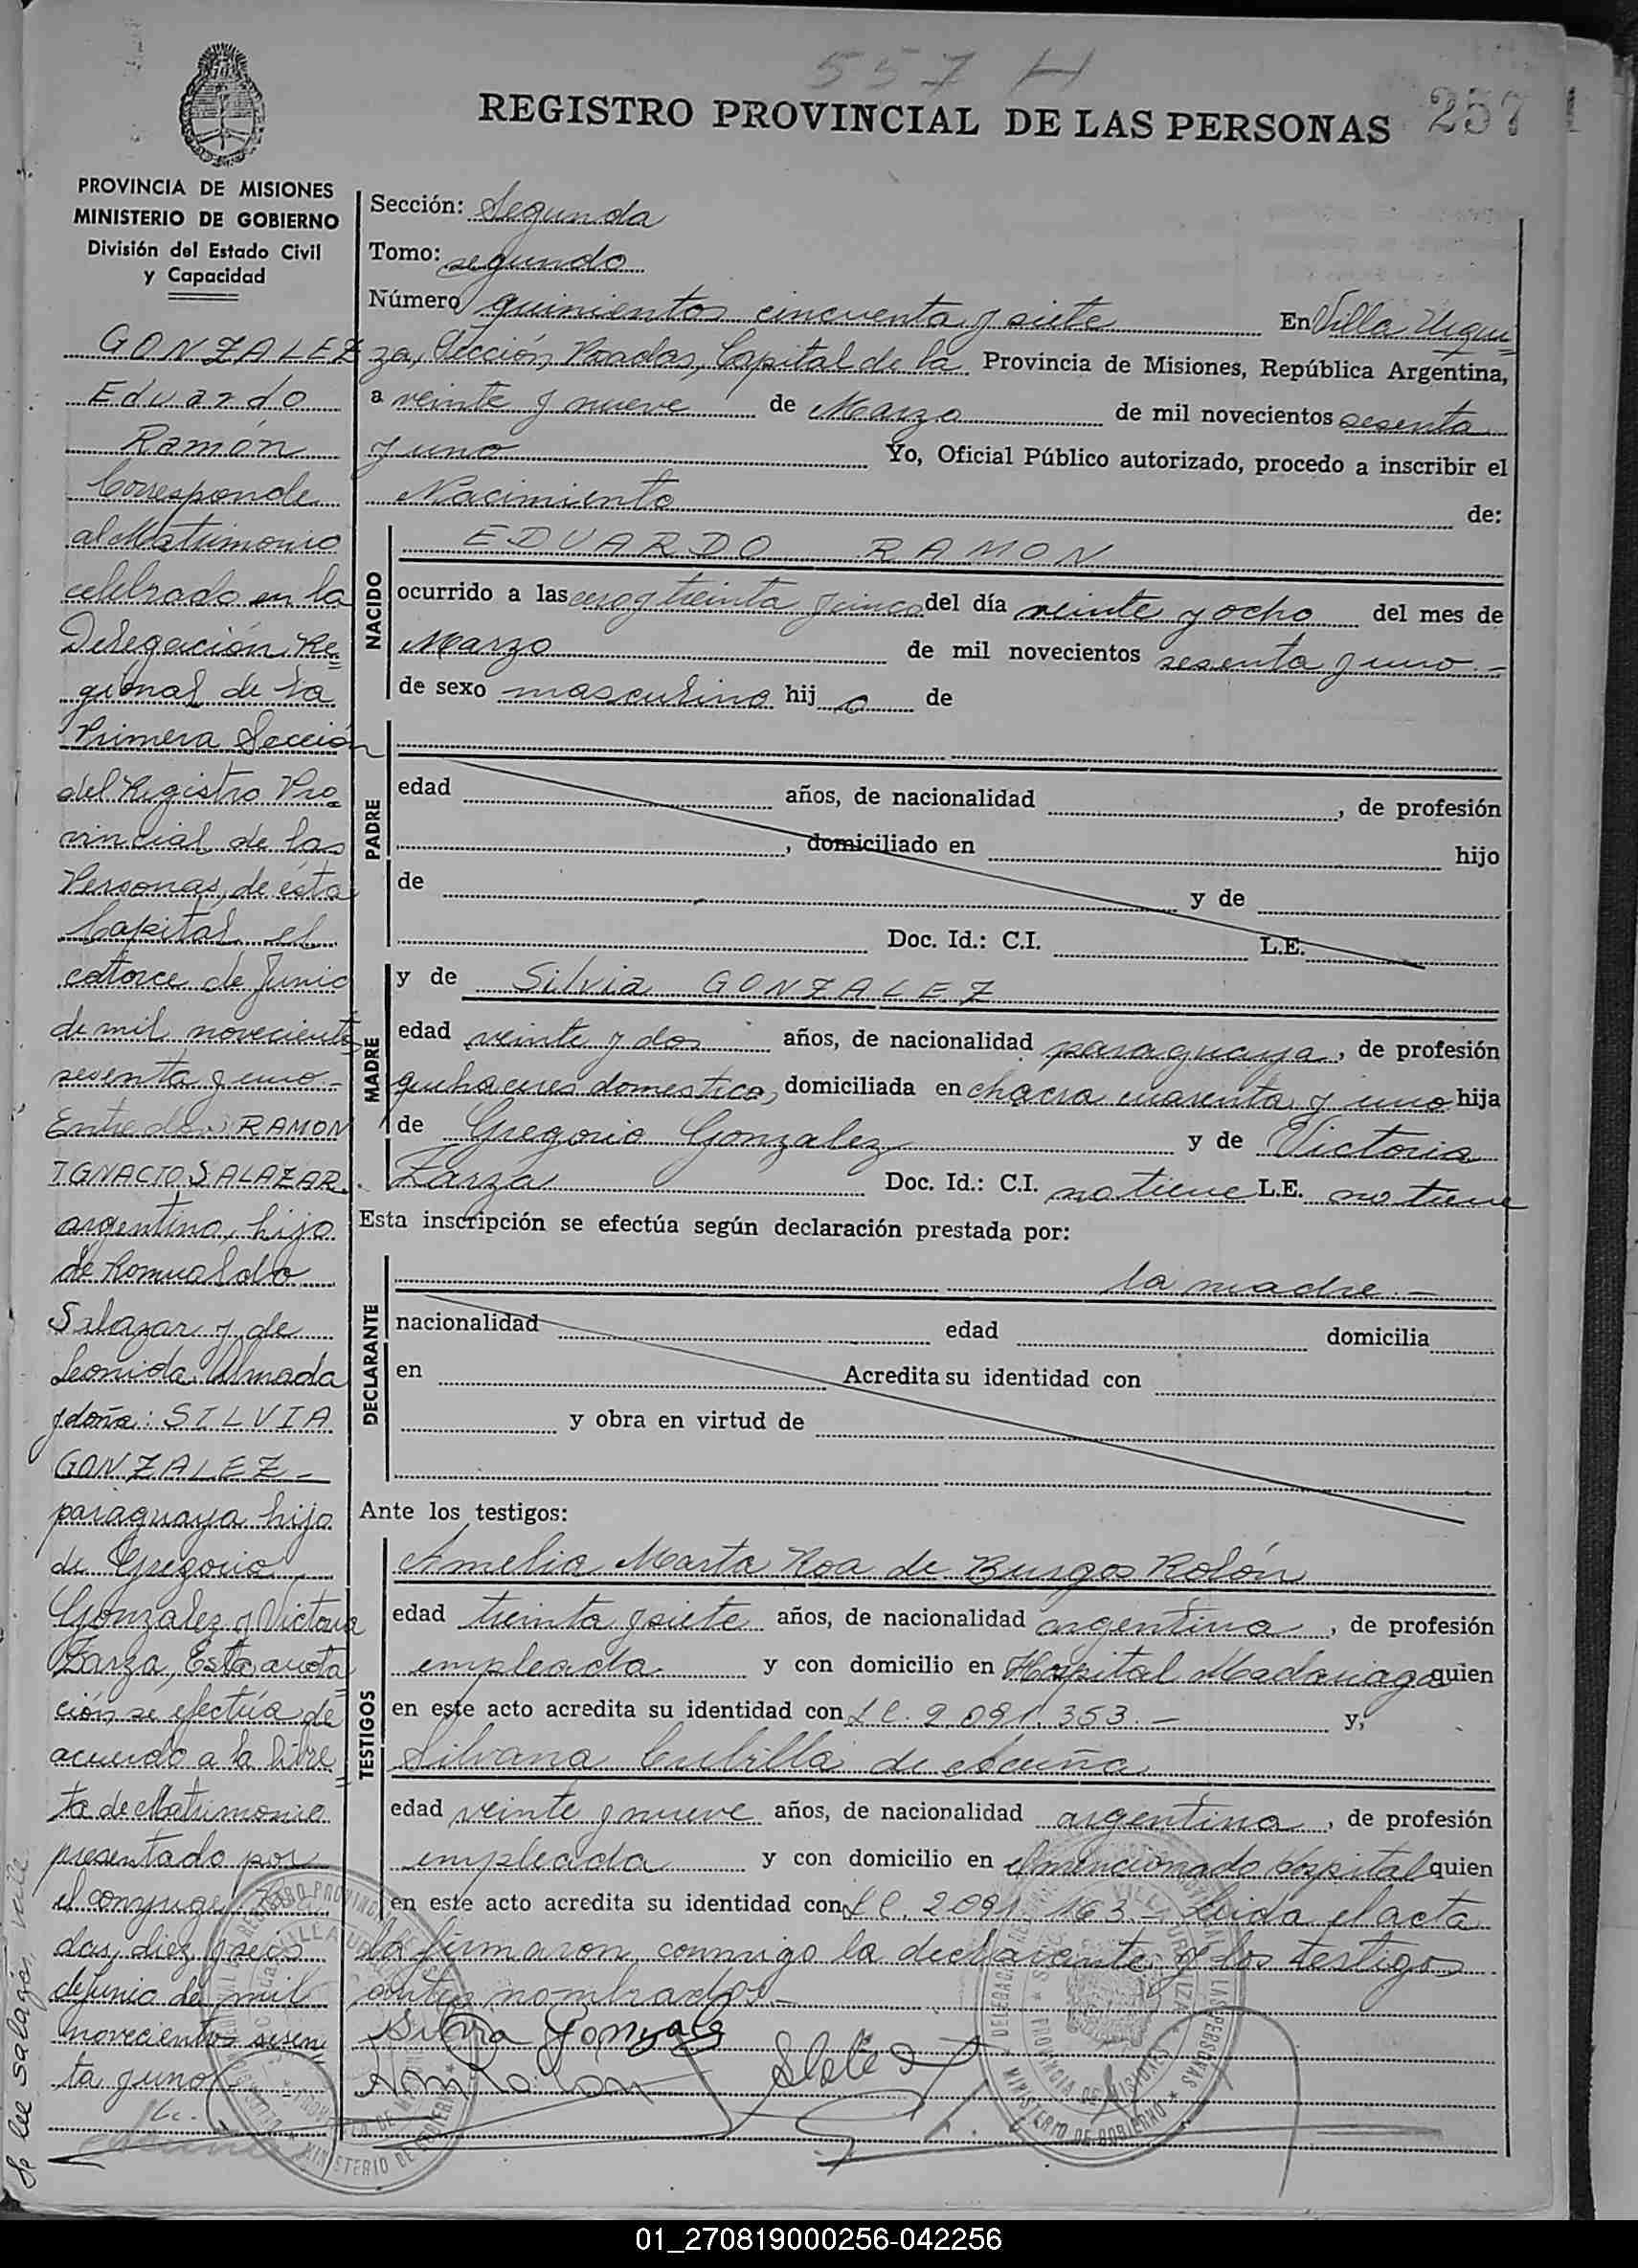 557 H
REGISTRO PROVINCIAL DE LAS PERSONAS
257
PROVINCIA DE MISIONES
MINISTERIO DE GOBIERNO
División del Estado Civil
y Capacidad
GONZALEZ
Eduardo
Ramón
Corresponde
al Matrimonio
celebrado en la
Delegación Re=
gional de la
Primera Sección
del Registro Pro=
vincial de las
Personas, de ésta
Capital, el
catorce de Junio
de mil novecientos
sesenta y uno -
Entre don RAMON
IGNACIO SALAZAR.
argentino, hijo
de Romualdo
Salazar y de
Leonida Almada
y doña: SILVIA
GONZALEZ -
paraguaya hija
de Gregorio
Gonzalez y Victoria
Zarza, Esta anota=
ción se efectúa de
acuerdo a la libre=
ta de Matrimonio
presentado por
el conyuge
das, diez y seis
de junio de mil
novecientos sesen=
ta y uno
Se lee salazar, vale
Sección: Segunda
Tomo: segundo
Número quinientos cincuenta y siete En Villa Urqui=
za, Sección, Posadas, Capital de la Provincia de Misiones, República Argentina,
a veinte y nueve de Marzo de mil novecientos sesenta
y uno Yo, Oficial Público autorizado, procedo a inscribir el
Nacimiento de:
NACIDO
EDUARDO RAMON
ocurrido a las cero y treinta y cinco del día veinte y ocho del mes de
Marzo de mil novecientos sesenta y uno.-
de sexo masculino hijo de
PADRE
edad años, de nacionalidad , de profesión
, domiciliado en hijo
de y de
Doc. Id.: C.I. L.E.
MADRE
y de Silvia GONZALEZ
edad veinte y dos años, de nacionalidad paraguaya, de profesión
quehaceres domestico, domiciliada en chacra cuarenta y uno hija
de Gregorio Gonzalez y de Victoria
Zarza Doc. Id.: C.I. no tiene L.E. no tiene
Esta inscripción se efectúa según declaración prestada por:
DECLARANTE
la madre.-
nacionalidad edad domicilia
en Acredita su identidad con
y obra en virtud de
Ante los testigos:
TESTIGOS
Amelia Marta Roa de Burgos Rolón
edad treinta y siete años, de nacionalidad argentina, de profesión
empleada y con domicilio en Hospital Madariaga quien
en este acto acredita su identidad con LC. 2.091.353.- y,
Silvana Cubilla de Acuña
edad veinte y nueve años, de nacionalidad argentina, de profesión
empleada y con domicilio en el mencionado Hospital quien
en este acto acredita su identidad con LC. 2091.163.- Leida el acta
la firmaron conmigo la declarante y los testigos
antes nombrados.-
Silvia Gonzalez
01_270819000256-042256